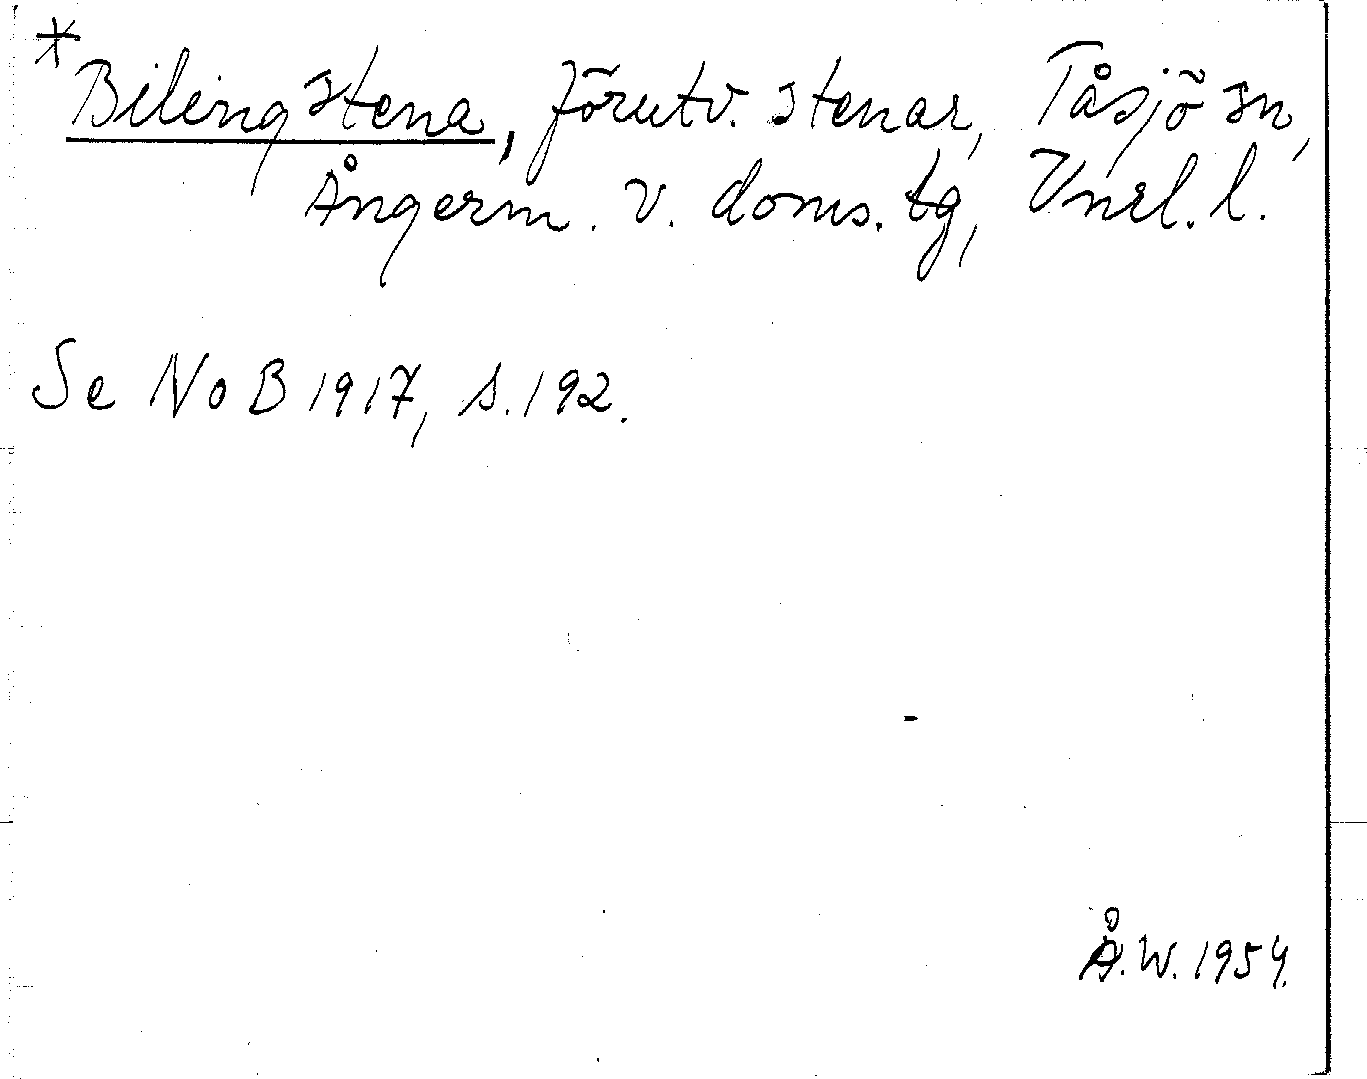 *Bilingstena, förutv. stenar, Tåsjö sn,
Ångerm. v. doms. tg, Vnrl. l.
Se NoB 1917, s. 192.
Å.W. 1954.